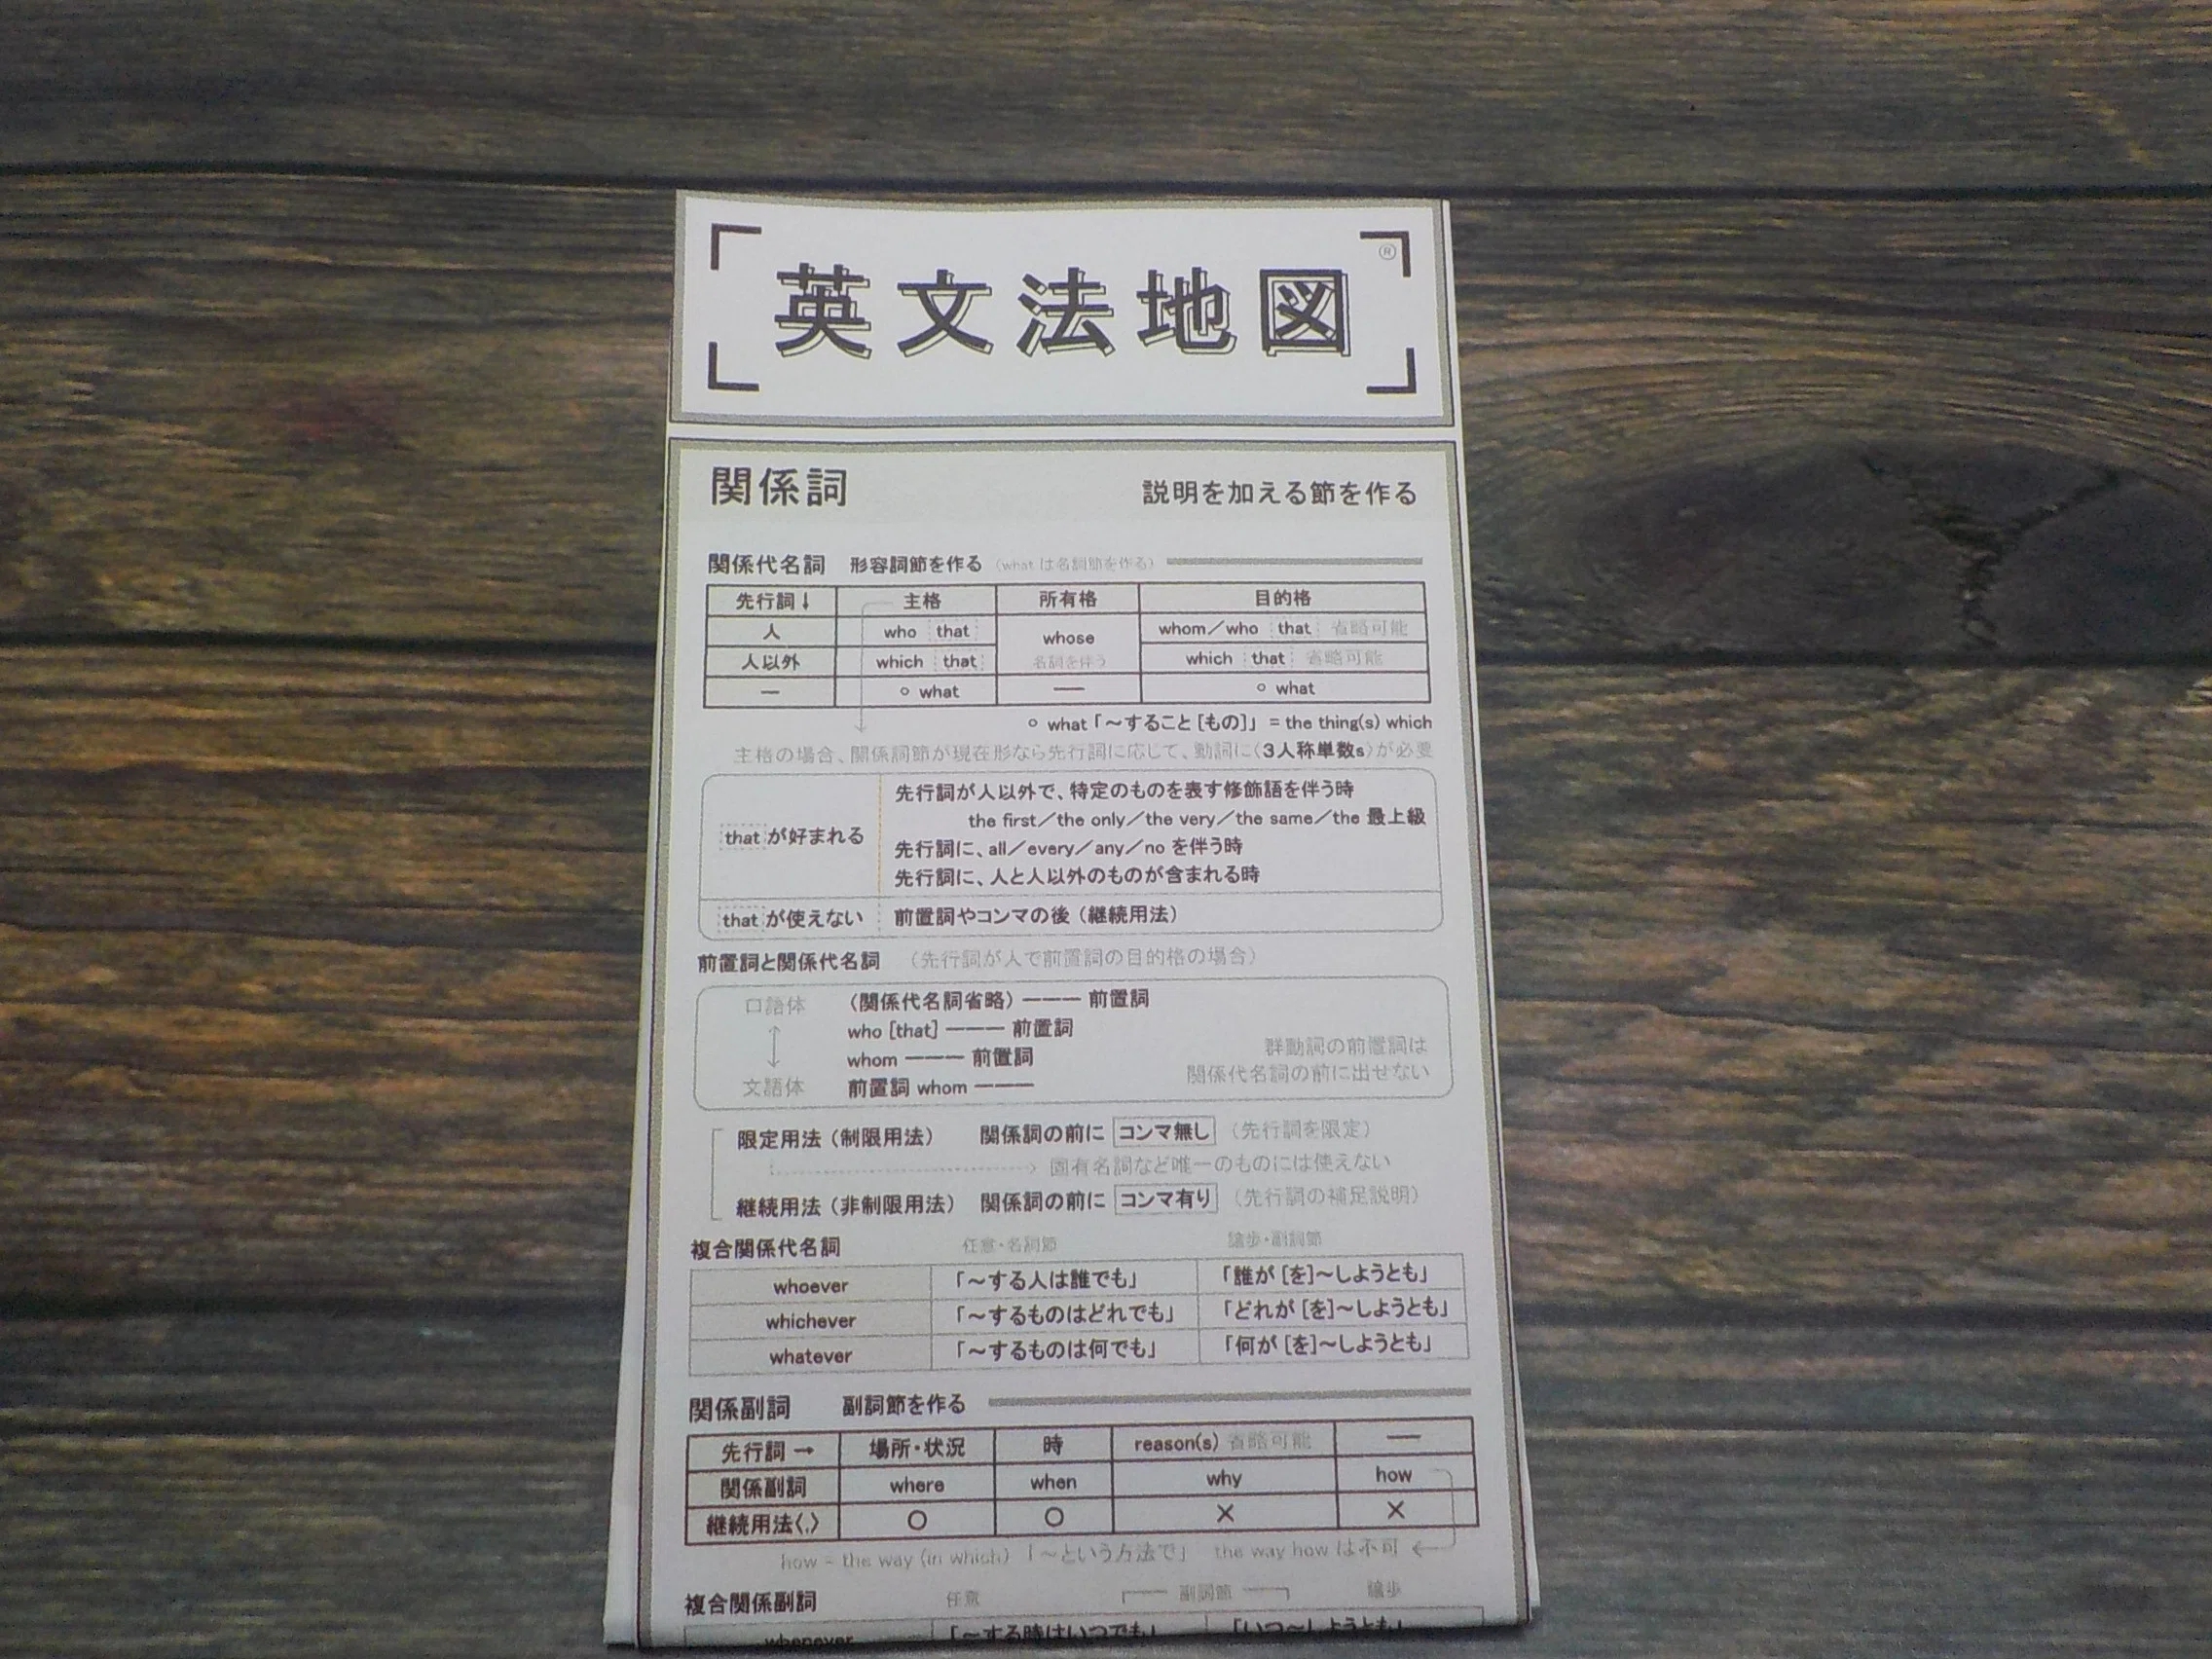 英文法地図®
関係詞 説明を加える節を作る
関係代名詞 形容詞節を作る (what は名詞節を作る)
先行詞↓ 主格 所有格 目的格
人 who that whose whom／who that 省略可能
人以外 which that 名詞を伴う which that 省略可能
— ○ what — ○ what
○ what「～すること[もの]」= the thing(s) which
主格の場合、関係詞節が現在形なら先行詞に応じて、動詞に〈3人称単数s〉が必要
that が好まれる 先行詞が人以外で、特定のものを表す修飾語を伴う時
the first／the only／the very／the same／the 最上級
先行詞に、all／every／any／no を伴う時
先行詞に、人と人以外のものが含まれる時
that が使えない 前置詞やコンマの後（継続用法）
前置詞と関係代名詞 （先行詞が人で前置詞の目的格の場合）
口語体 （関係代名詞省略）——— 前置詞
↕ who [that] ——— 前置詞
whom ——— 前置詞 群動詞の前置詞は
文語体 前置詞 whom ——— 関係代名詞の前に出せない
限定用法（制限用法） 関係詞の前に コンマ無し （先行詞を限定）
→ 固有名詞など唯一のものには使えない
継続用法（非制限用法） 関係詞の前に コンマ有り （先行詞の補足説明）
複合関係代名詞 任意・名詞節 譲歩・副詞節
whoever 「～する人は誰でも」 「誰が[を]～しようとも」
whichever 「～するものはどれでも」 「どれが[を]～しようとも」
whatever 「～するものは何でも」 「何が[を]～しようとも」
関係副詞 副詞節を作る
先行詞→ 場所・状況 時 reason(s) 省略可能 —
関係副詞 where when why how
継続用法〈,〉 ○ ○ × ×
how = the way (in which) 「～という方法で」 the way how は不可 ←
複合関係副詞 任意 副詞節 譲歩
whenever 「～する時はいつでも」 「いつ～しようとも」